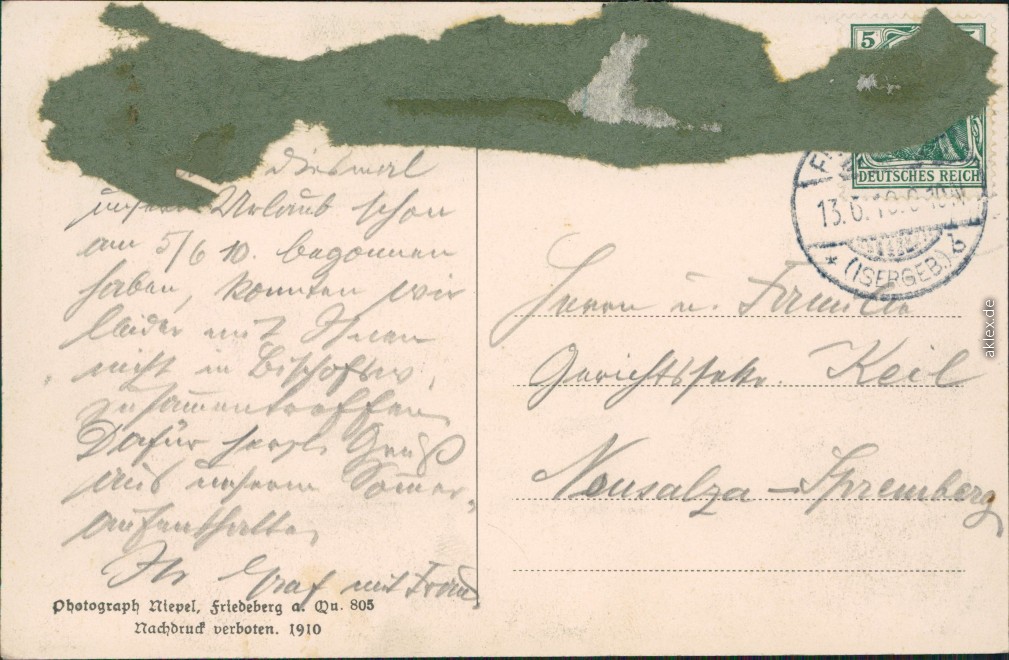 diesmal
unsern Urlaub schon
am 5/6 10. begonnen
haben, konnten wir
leider mit Ihnen
nicht in Bischofsw.
zusammentreffen
Dafür herzl. Gruß
aus unserm Sommer-
aufenthalte
Ihr Graf mit Frau
Photograph Niepel, Friedeberg a. Qu. 805
Nachdruck verboten. 1910
5
DEUTSCHES REICH
13.6.10.
* (ISERGEB.) b
Herrn u. Familie
Gerichtssekr. Keil
Neusalza-Spremberg
aklex.de